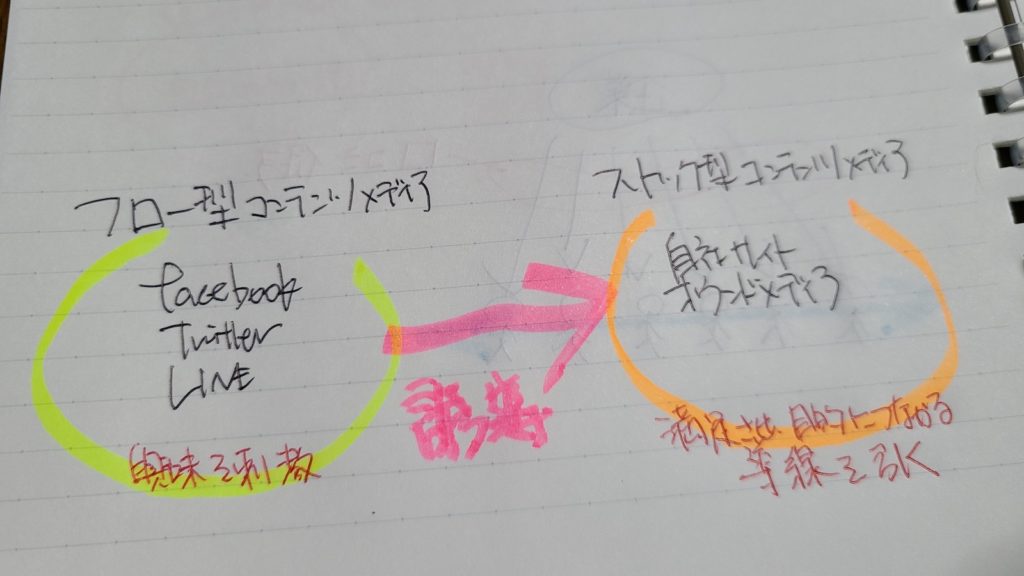 フロー型コンテンツメディア
facebook
Twitter
LINE
興味を刺激
誘導
ストック型コンテンツメディア
自社サイト
オウンドメディア
満足させ目的につながる
導線を引く